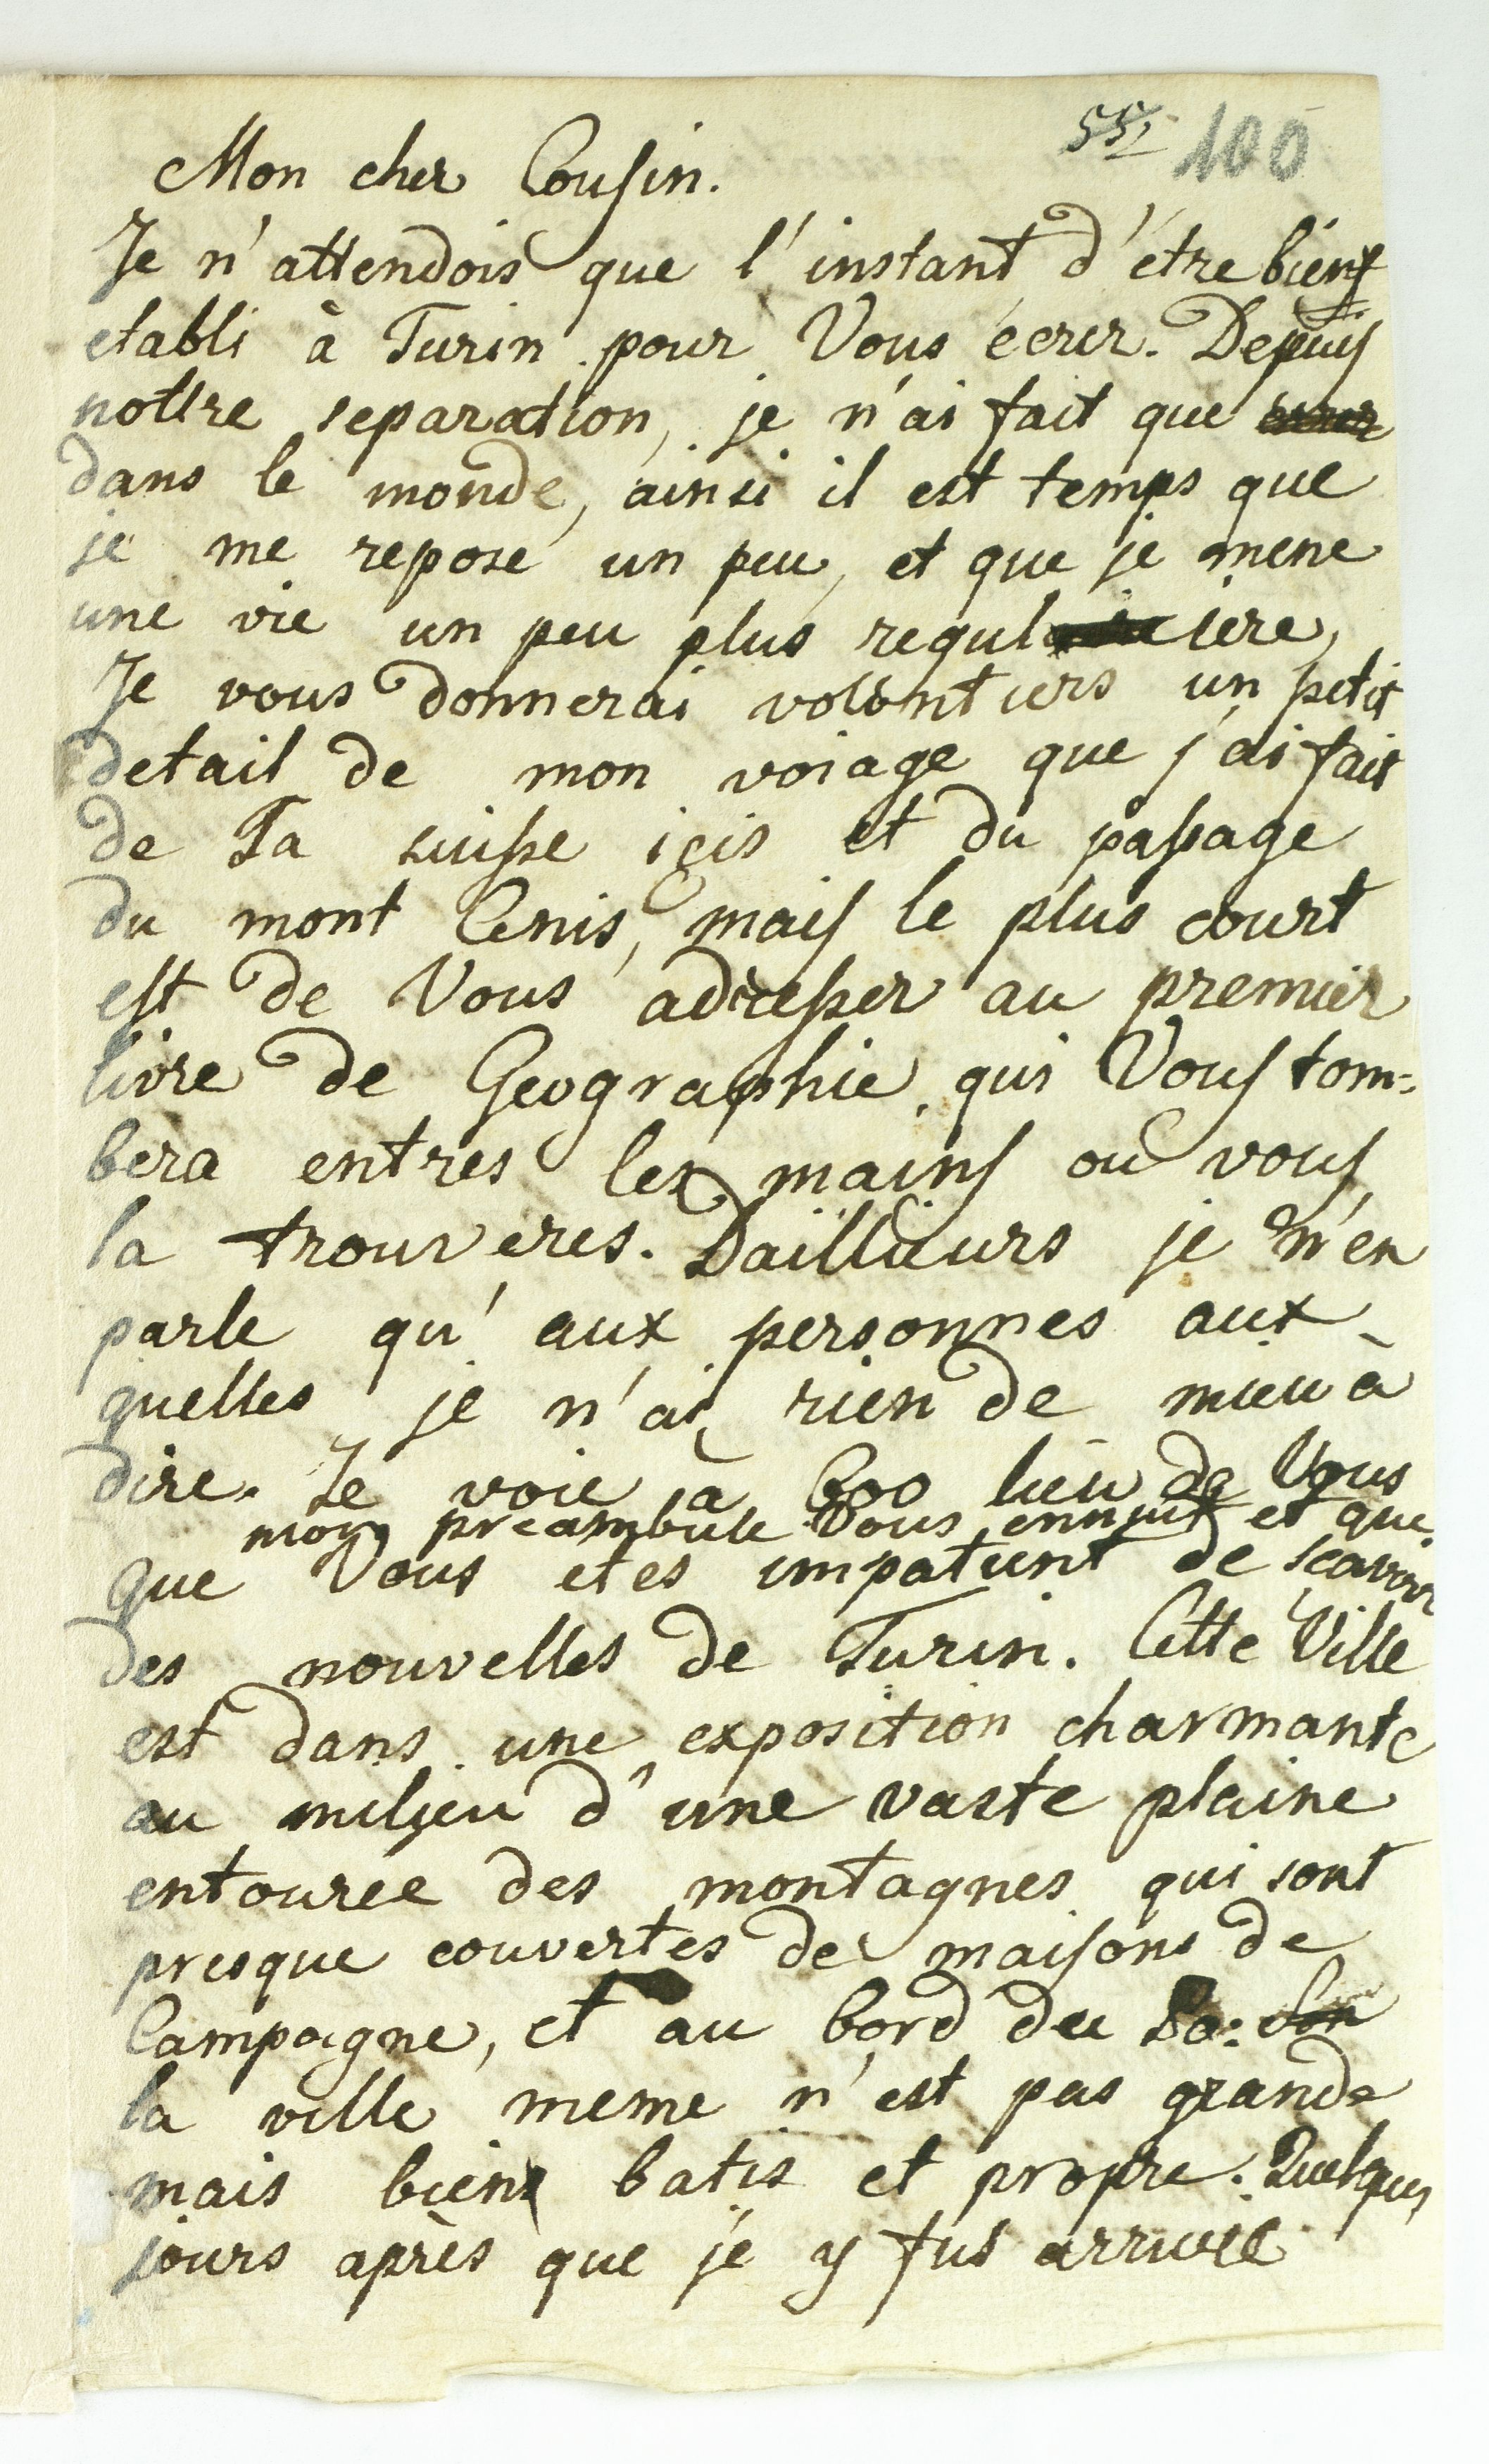 551 100
Mon cher Cousin.
Je n'attendois que l'instant d'étre bien
etabli à Turin pour Vous ecrir. Depuis
nottre separation, je n'ai fait que errer
dans le monde, ainsi il est temps que
je me repose un peu, et que je mene
une vie un peu plus reguliere,
Je vous donnerai volontiers un petit
detail de mon voiage que j'ai fait
de la suisse içis et du passage
du mont Cenis, mais le plus court
est de Vous adresser au premier
livre de Geographie, qui Vous tom-
bera entres les mains où vous
la trouveres. Dailleurs je n'en
parle qu'aux personnes aux
quelles je n'ai rien de mieu à
dire. Je voie à 600 lieu de Vous
mon preambule Vous ennuit et que
que Vous etes impatient de scavoir
des nouvelles de Turin. Cette Ville
est dans une exposition charmante
au milieu d'une vaste plaine
entouree des montagnes qui sont
presque couvertes de maisons de
Campagne, et au bord du Po:
la ville meme n'est pas grande
mais bien batis et propre. Quelques
jours après que je y fus arrivée